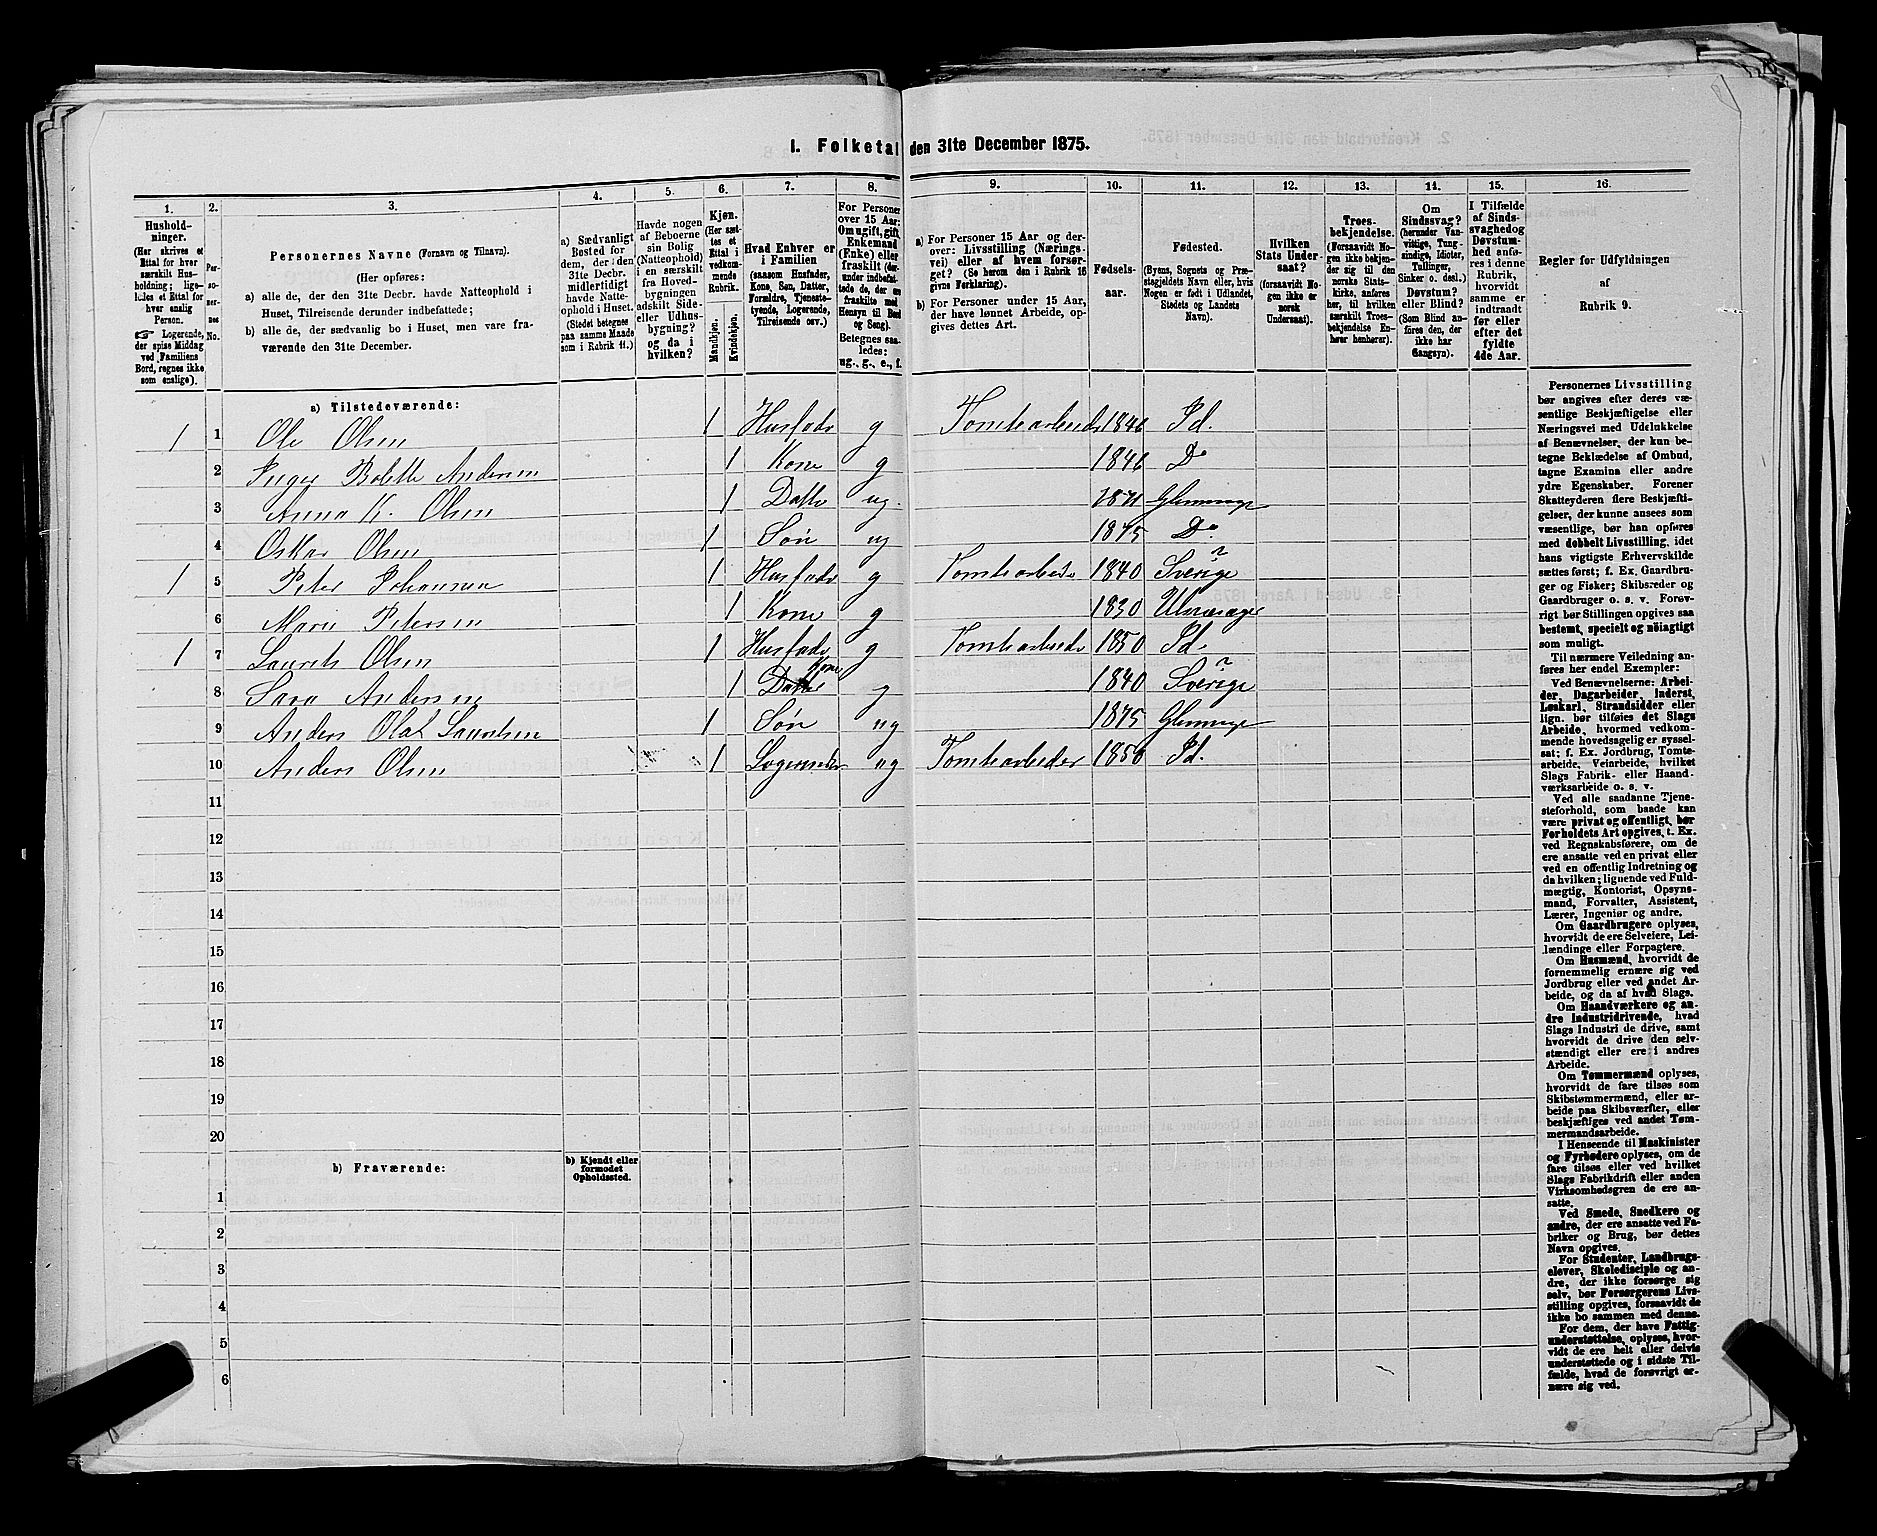 1. Folketal den 31te December 1875.
1.
Hushold-
ninger.
(Her skrives et
Ettal for hver
særskilt Hus-
holdning; lige-
ledes et Ettal for
hver enslig
Person.
☞ Logerende,
der spise Middag
ved Familiens
Bord, regnes ikke
som enslige).
2.
Per-
so-
ner-
nes
No.
3.
Personernes Navne (Fornavn og Tilnavn).
(Her opføres:
a) alle de, der den 31te Decbr. havde Natteophold i
Huset, Tilreisende derunder indbefattede;
b) alle de, der sædvanlig bo i Huset, men vare fra-
værende den 31te December.
4.
a) Sædvanligt
Bosted for
dem, der den
31te Decbr.
midlertidigt
havde Natte-
ophold i Huset.
(Stedet betegnes
paa samme Maade
som i Rubrik 11.)
5.
Havde nogen
af Beboerne
sin Bolig
(Natteophold)
i en særskilt
fra Hoved-
bygningen
adskilt Side-
eller Udhus-
bygning?
og da i
hvilken?
6.
Kjøn.
(Her sæt-
tes et
Ettal i
vedkom-
mende
Rubrik.
Mandkjøn.
Kvindekjøn.
7.
Hvad Enhver er
i Familien
(saasom Husfader,
Kone, Søn, Datter,
Forældre, Tjeneste-
tyende, Logerende,
Tilreisende osv.)
8.
For Personer
over 15 Aar:
Om ugift, gift,
Enkemand
(Enke) eller
fraskilt (der-
under indbefat-
tede de, der ere
fraskilte med
Hensyn til Bord
og Seng).
Betegnes saa-
ledes:
ug., g., e., f.
9.
a) For Personer 15 Aar og der-
over: Livsstilling (Nærings-
vei) eller af hvem forsør-
get? (Se herom den i Rubrik 16
givne Forklaring).
b) For Personer under 15 Aar,
der have lønnet Arbeide, op-
gives dettes Art.
10.
Fødsels-
aar.
11.
Fødested.
(Byens, Sognets og Præ-
stegjeldets Navn eller, hvis
Nogen er født i Udlandet,
Stedets og Landets
Navn).
12.
Hvilken
Stats Under-
saat?
(forsaavidt No-
gen ikke er
norsk
Undersaat).
13.
Troes-
bekjendelse.
(Forsaavidt No-
gen ikke bekjen-
der sig til den
norske Stats-
kirke, anføres
her, til hvilken
særskilt Troes-
bekjendelse En-
hver henhører).
14.
Om
Sindssvag?
(herunder Van-
vittige, Tung-
sindige, Idioter,
Tullinger,
Sinker o. desl.)
Døvstum?
eller Blind?
(Som Blind an-
føres den, der
ikke har
Gangsyn).
15.
I Tilfælde
af Sinds-
svaghed og
Døvstum-
hed anfø-
res i denne
Rubrik,
hvorvidt
samme er
indtraadt
før eller
efter det
fyldte
4de Aar.
16.
Regler for Udfyldningen
af
Rubrik 9.
a) Tilstedeværende:
1 1 Ole Olsen 1 Husfader g Tomtearbeider 1846 Id.
2 Inger Bolette Andersen 1 Kone g 1846 Do
3 Anna K. Olsen 1 Datter ug. 1871 Glemminge
4 Oskar Olsen 1 Søn ug 1875 Do
1 5 Peter Johansen 1 Husfader g Tomtearbeider 1840 Sverige ?
6 Marie Petersen 1 Kone g 1830
1 7 Laurits Olsen 1 Husfader g Tomtearbeider 1850 Id.
8 Sara Andersen 1 Datter Kone g 1840 Sverige ?
9 Anders Olaf Lauritsen 1 Søn ug 1875 Glemminge
10 Anders Olsen 1 Logerende ug Tomtearbeider 1850 Id.
11
12
13
14
15
16
17
18
19
20
b) Fraværende:
b) Kjendt eller
formodet
Opholdssted.
1
2
3
4
5
6
Personernes Livsstilling
bør angives efter deres væ-
sentlige Beskjæftigelse eller
Næringsvei med Udelukkelse
af Benævnelser, der kun be-
tegne Beklædelse af Ombud,
tagne Examina eller andre
ydre Egenskaber. Forener
Skatteyderen flere Beskjæfti-
gelser, der kunne ansees som
væsentlige, bør han opføres
med dobbelt Livsstilling, idet
hans vigtigste Erhvervskilde
sættes først; f. Ex. Gaardbru-
ger og Fisker; Skibsreder og
Gaardbruger o. s. v. Forøv-
rigt bør Stillingen opgives saa
bestemt, specielt og nøiagtigt
som muligt.
Til nærmere Veiledning an-
føres her endel Exempler:
Ved Benævnelserne: Arbei-
der, Dagarbeider, Inderst,
Løskarl, Strandsidder eller
lign. bør tilføies det Slags
Arbeide, hvormed vedkom-
mende hovedsagelig er syssel-
sat; f. Ex. Jordbrug, Tomte-
arbeide, Veiarbeide, hvilket
Slags Fabrik- eller Haand-
værksarbeide o. s. v.
Ved alle saadanne Tjene-
steforhold, som baade kan
være privat og offentligt, bør
Forholdets Art opgives, t. Ex.
ved Regnskabsførere, om de
ere ansatte ved en privat eller
ved en offentlig Indretning og
da hvilken; lignende ved Fuld-
mægtig, Kontorist, Opsyns-
mand, Forvalter, Assistent,
Lærer, Ingeniør og andre.
Om Gaardbrugere oplyses,
hvorvidt de ere Selveiere, Lei-
lændinge eller Forpagtere.
Om Husmænd, hvorvidt de
fornemmelig ernære sig ved
Jordbrug eller ved andet Ar-
beide, og da af hvad Slags.
Om Haandværkere og an-
dre Industridrivende, hvad
Slags Industri de drive, samt
hvorvidt de drive den selv-
stændigt eller ere i andres
Arbeide.
Om Tømmermænd oplyses,
hvorvidt de fare tilsøs som
Skibstømmermænd, eller ar-
beide paa Skibsværfter, eller
beskjæftiges ved andet Tøm-
mermandsarbeide.
I Henseende til Maskinister
og Fyrbødere oplyses, om de
fare tilsøs eller ved hvilket
Slags Fabrikdrift eller anden
Virksomhedsgren de ere an-
satte.
Ved Smede, Snedkere og
andre, der ere ansatte ved Fa-
briker og Brug, bør dettes
Navn opgives.
For Studenter, Landbrugs-
elever, Skoledisciple og an-
dre, der ikke forsørge sig
selv, bør Forsørgerens Livs-
stilling opgives, forsaavidt de
ikke bo sammen med denne.
For dem, der have Fattig-
understøttelse, oplyses, hvor-
vidt de ere helt eller delvis
understøttede og i sidste Til-
fælde, hvad de forøvrigt er-
nære sig ved.